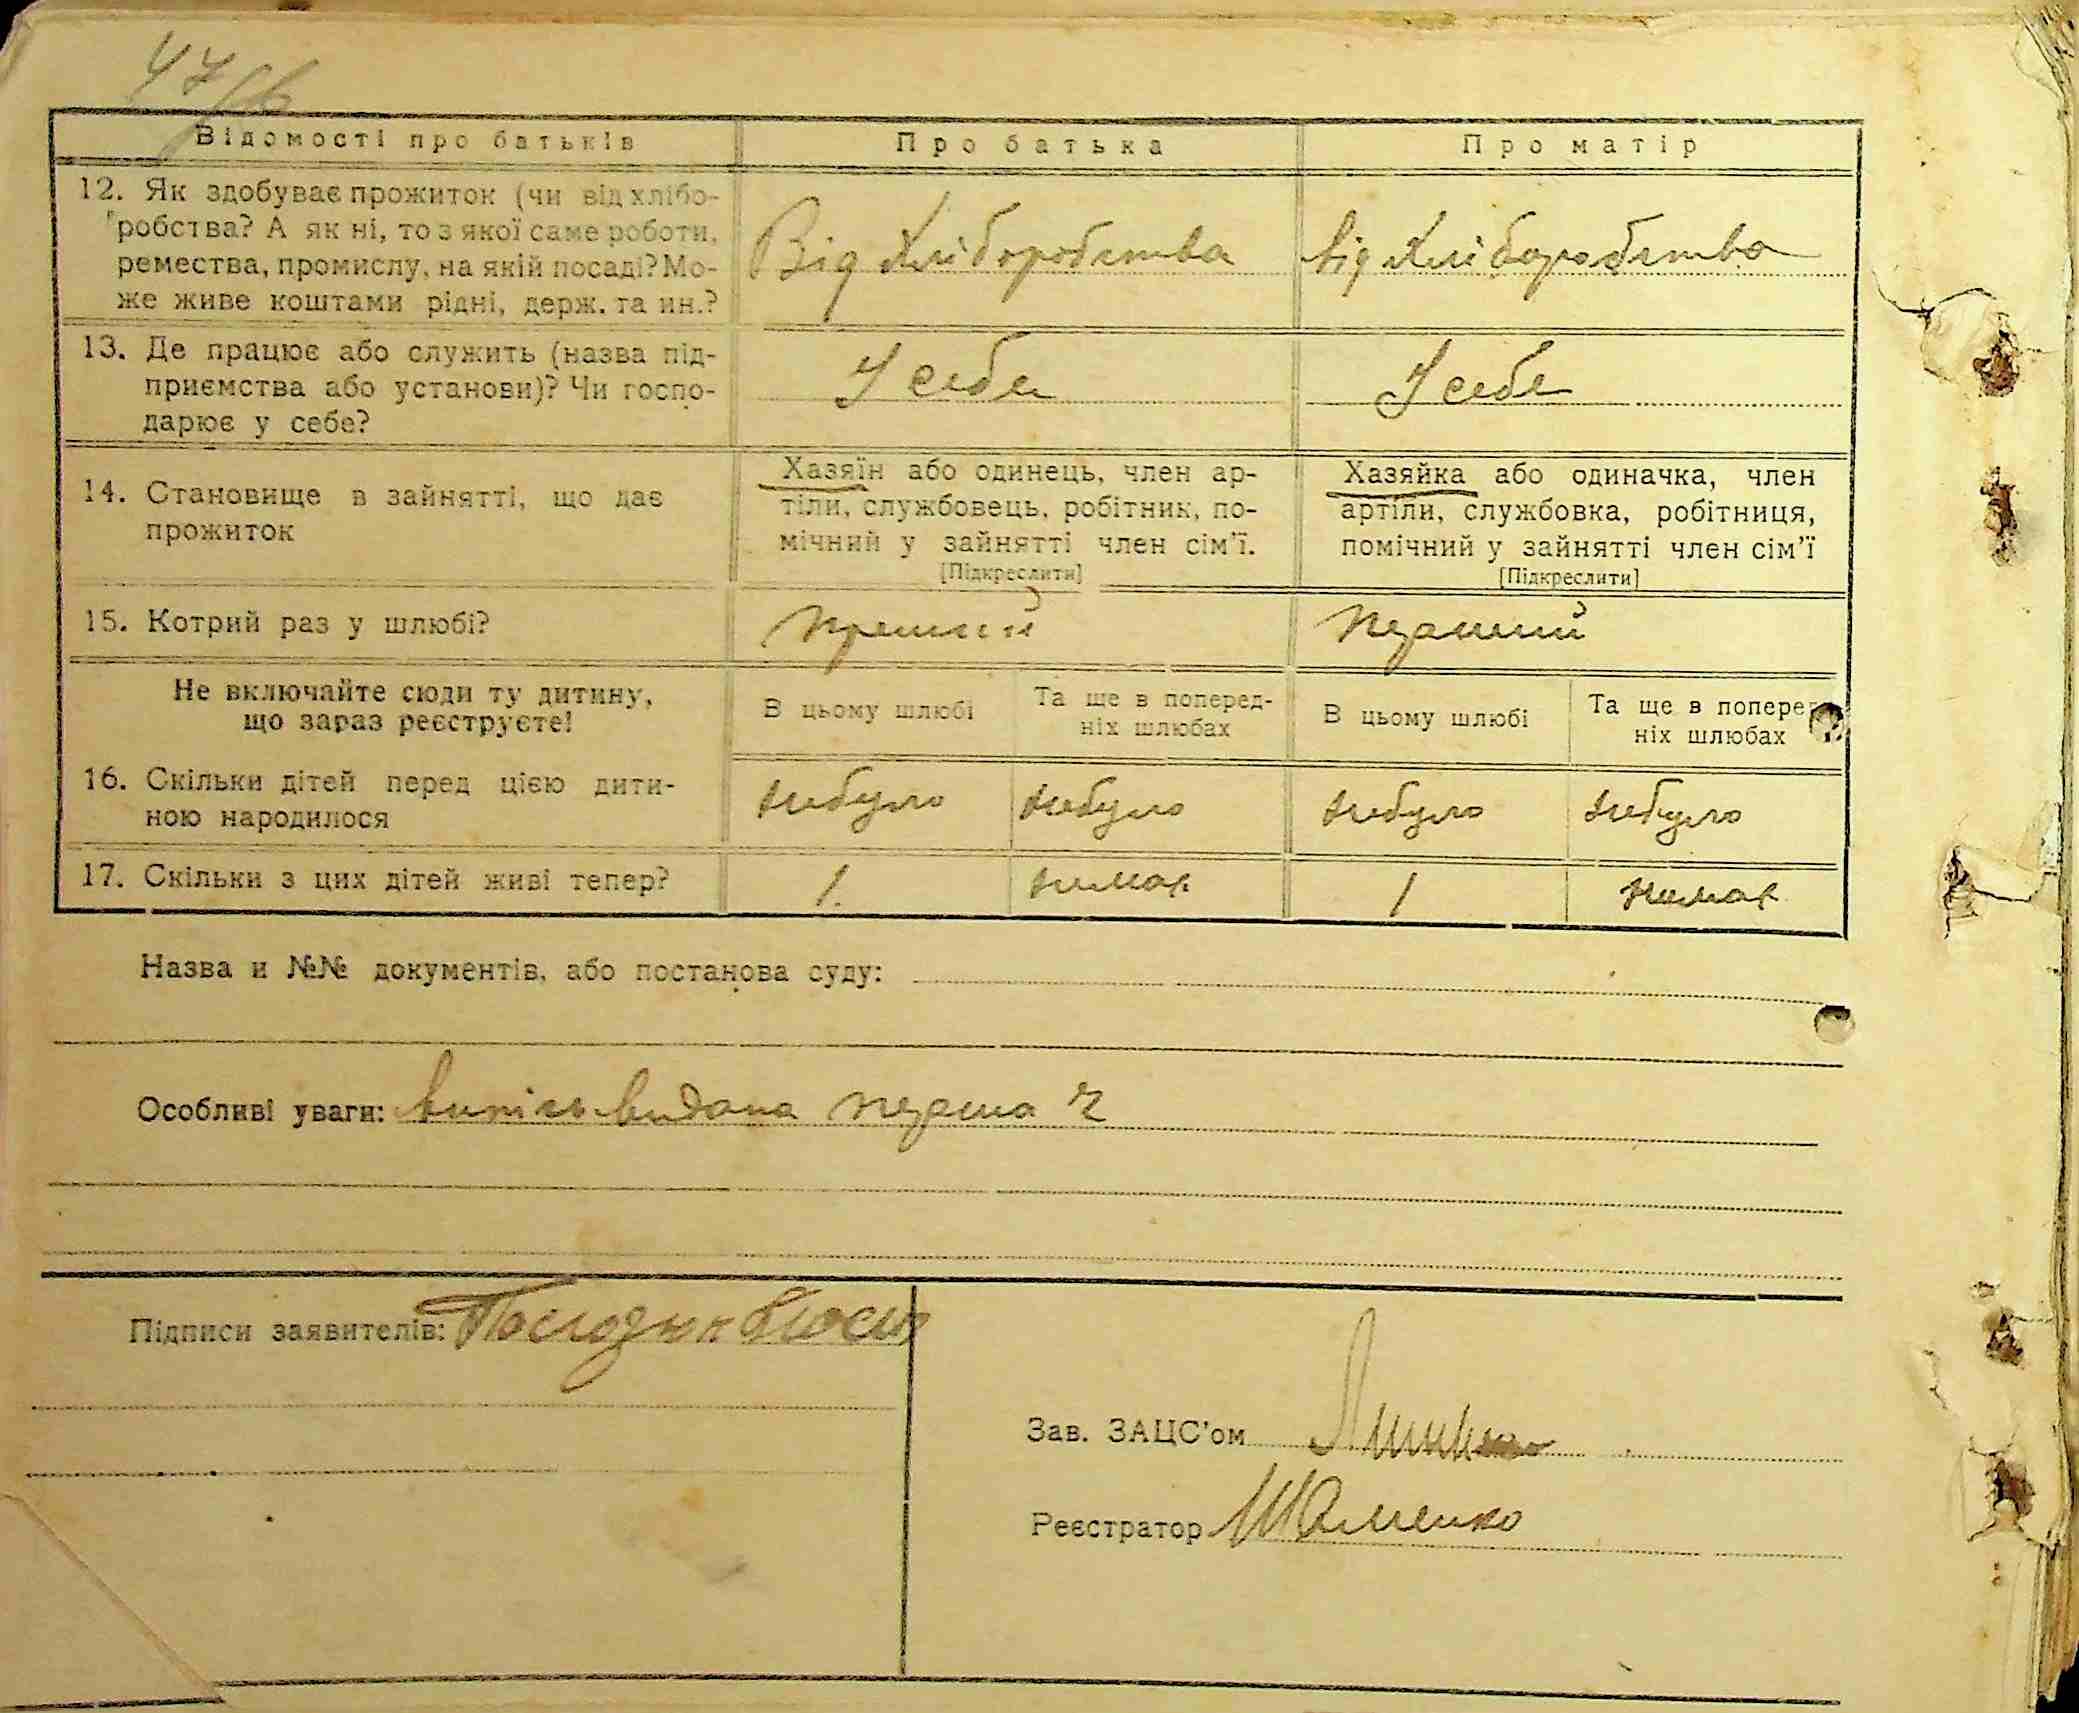 47
Відомості про батьків
Про батька
Про матір
12. Як здобуває прожиток (чи від хлібо-
робства? А як ні, то з якої саме роботи,
ремества, промислу, на якій посаді? Мо-
же живе коштами рідні, держ. та ин.?
Від Хліборобства
від Хліборобства
13. Де працює або служить (назва під-
приємства або установи)? Чи госпо-
дарює у себе?
У себе
У себе
14. Становище в зайнятті, що дає
прожиток
Хазяїн або одинець, член ар-
тіли, службовець, робітник, по-
мічний у зайнятті член сім’ї.
[Підкреслити]
Хазяйка або одиначка, член
артіли, службовка, робітниця,
помічний у зайнятті член сім’ї
[Підкреслити]
15. Котрий раз у шлюбі?
преший
перший
Не включайте сюди ту дитину,
що зараз реєструєте!
В цьому шлюбі
Та ще в поперед-
ніх шлюбах
В цьому шлюбі
Та ще в попере
ніх шлюбах
16. Скільки дітей перед цією дити-
ною народилося
небуло
небуло
небуло
небуло
17. Скільки з цих дітей живі тепер?
1.
немає
1
немає
Назва и №№ документів, або постанова суду:
Особливі уваги: випісь видана перша
Підписи заявителів:
Зав. ЗАЦС’ом
Реєстратор